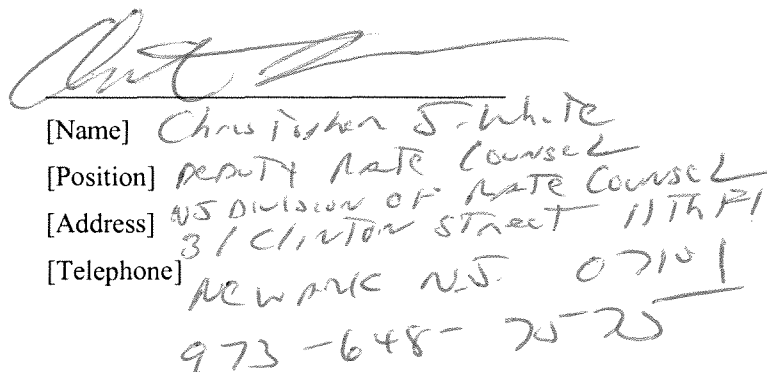 [Name] Christopher J. White
[Position] Deputy Rate Counsel
[Address] NJ Division of Rate Counsel
31 Clinton Street 11th Fl
[Telephone]
Newark N.J. 07101
973-648-